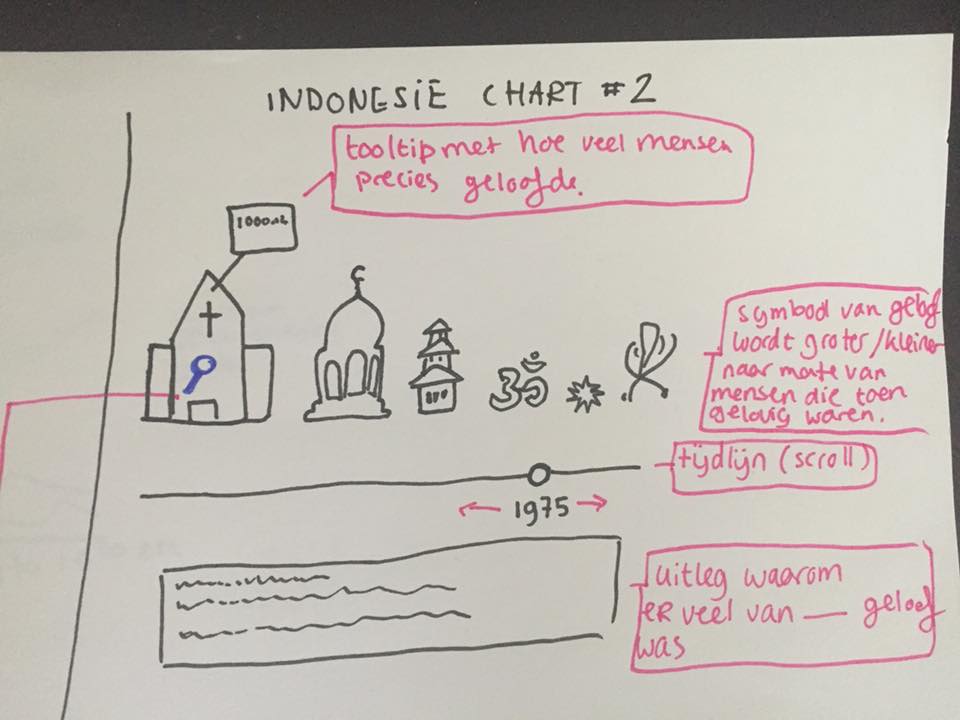 INDONESIË CHART #2
tooltip met hoe veel mensen
precies geloofde.
symbool van geloof
wordt groter/kleiner
naar mate van
mensen die toen
gelovig waren.
tijdlijn (scroll)
1975
uitleg waarom
ER veel van — geloof
was